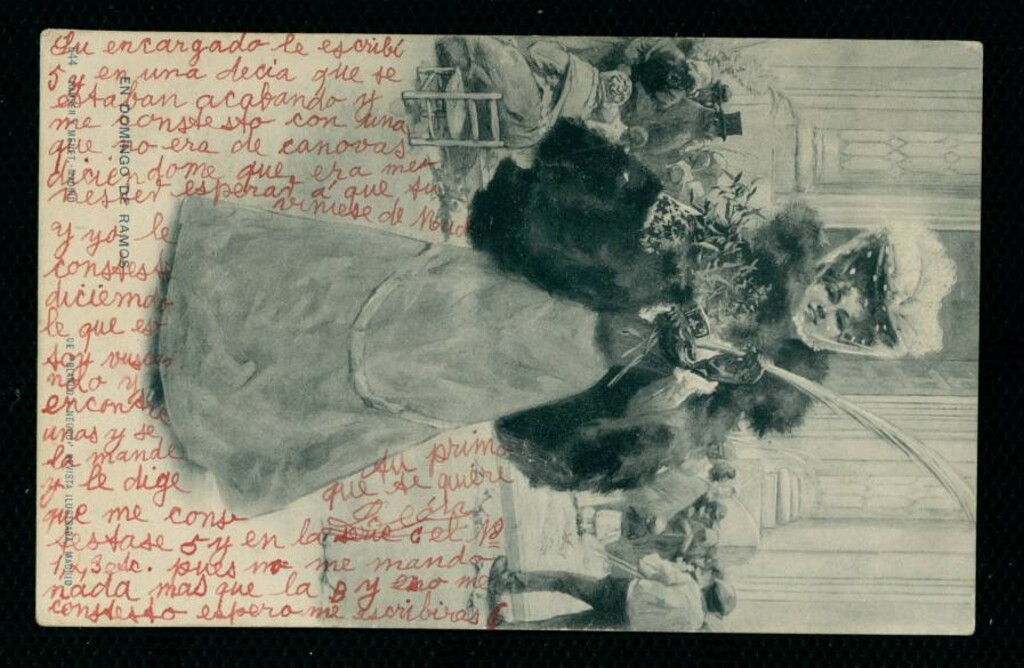 Su encargado le escribí
5 y en una decia que se
estaban acabando y
me constesto con una
que no era de canovas
diciéndome que, era me
nester esperar á que su
viniese de
y yo le
constest
diciemdo
le que es
toy vusca
ndo y
encontre
unas y se
la mande
y le dige
que me cons
testase 5 y en la serie 6 el Nº
1, 2, 3 etc. pues no me mando
nada mas que la B y eno me
contesto espero me escribiras 6
tu primo
que te quiere
EN DOMINGO DE RAMOS
544 HAUSER Y MENET.-MADRID
DE BLANCO Y NEGRO, REVISTA ILUSTRADA, MADRID